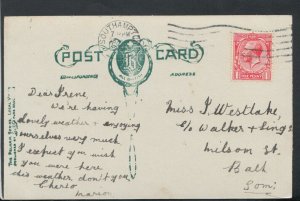 SOUTHAMPTON
7
POST CARD
ADDRESS
Dear Irene,
We're having
lovely weather & enjoying
ourselves very much
I expect you wish
you were here
this weather don't you
Cherio
Marion
Miss I. Westlake,
c/o Walker & Lings
Milsom St.
Bath
Som.